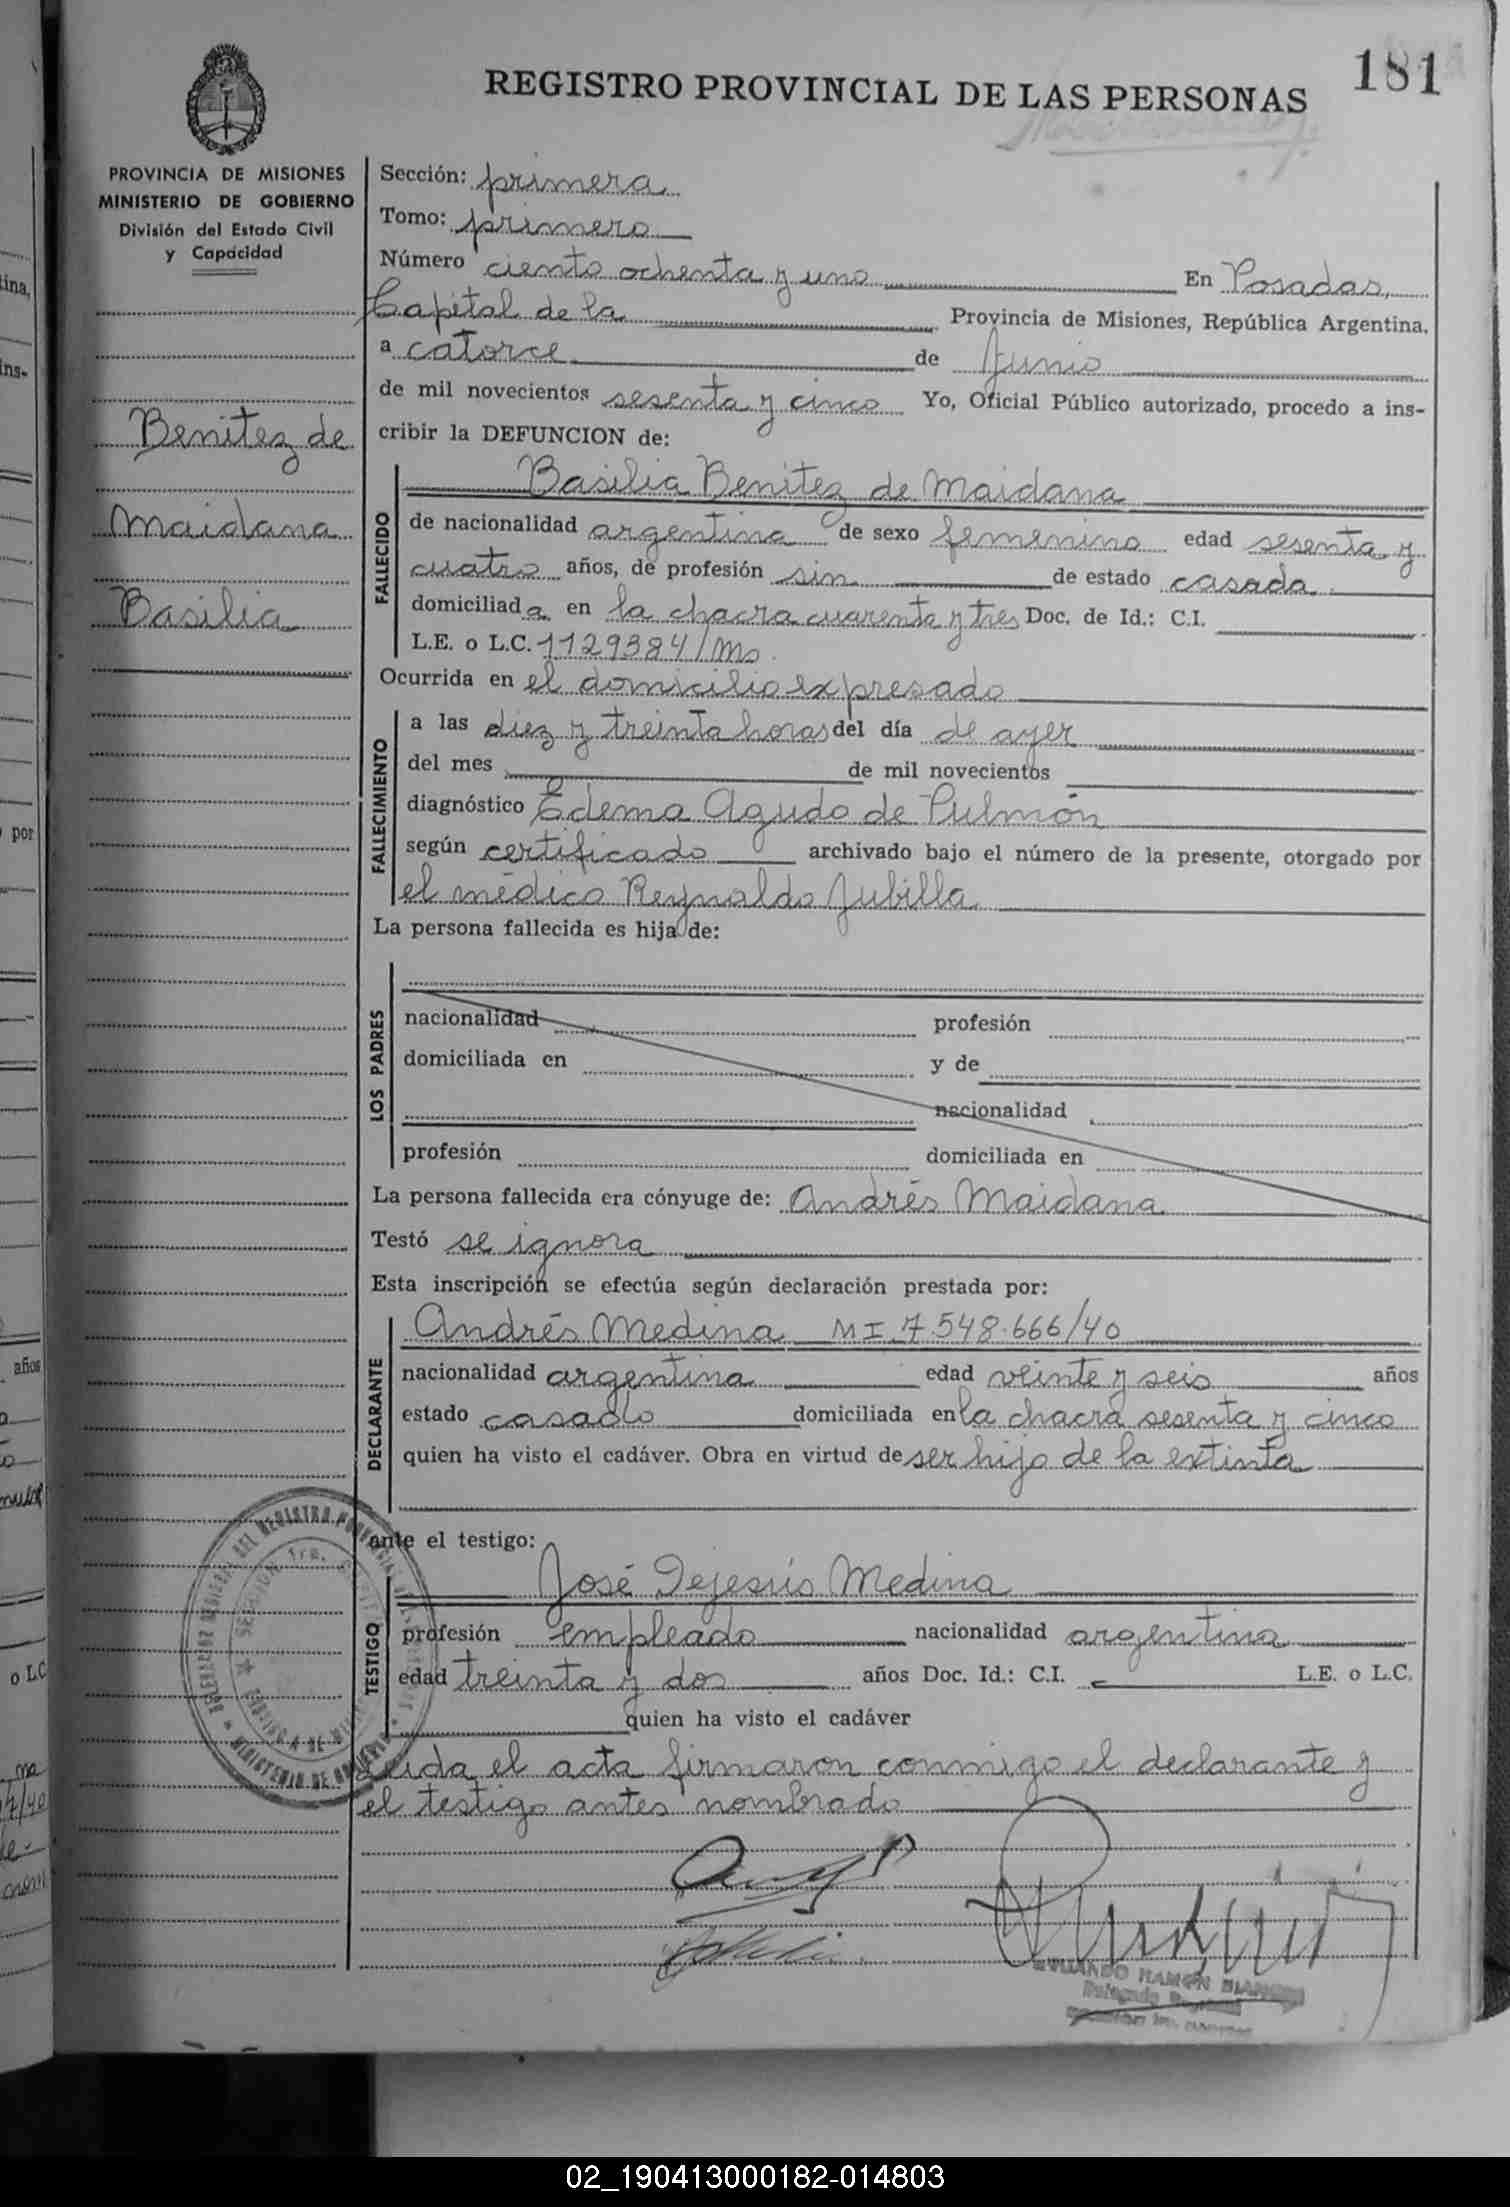 181
REGISTRO PROVINCIAL DE LAS PERSONAS
PROVINCIA DE MISIONES
MINISTERIO DE GOBIERNO
División del Estado Civil
y Capacidad
Benitez de
Maidana
Basilia
Sección: primera
Tomo: primero
Número ciento ochenta y uno En Posadas,
Capital de la Provincia de Misiones, República Argentina,
a catorce de Junio
de mil novecientos sesenta y cinco Yo, Oficial Público autorizado, procedo a ins-
cribir la DEFUNCION de:
FALLECIDO
Basilia Benitez de Maidana
de nacionalidad argentina de sexo femenino edad sesenta y
cuatro años, de profesión sin de estado casada
domiciliada en la chacra cuarenta y tres Doc. de Id.: C.I.
L.E. o L.C. 1129384/Ms.
Ocurrida en el domicilio expresado
FALLECIMIENTO
a las diez y treinta horas del día de ayer
del mes de mil novecientos
diagnóstico Edema Agudo de Pulmón
según certificado archivado bajo el número de la presente, otorgado por
el médico Reynaldo Jubilla
La persona fallecida es hija de:
LOS PADRES
nacionalidad profesión
domiciliada en y de
nacionalidad
profesión domiciliada en
La persona fallecida era cónyuge de: Andrés Maidana
Testó se ignora
Esta inscripción se efectúa según declaración prestada por:
DECLARANTE
Andrés Medina MI 7.548.666/40
nacionalidad argentina edad veinte y seis años
estado casado domiciliada en la chacra sesenta y cinco
quien ha visto el cadáver. Obra en virtud de ser hijo de la extinta
ante el testigo:
TESTIGO
José Dejesús Medina
profesión empleado nacionalidad argentina
edad treinta y dos años Doc. Id.: C.I. L.E. o L.C.
quien ha visto el cadáver
Leida el acta firmaron conmigo el declarante y
el testigo antes nombrado
RAMON
Delegado
02_190413000182-014803